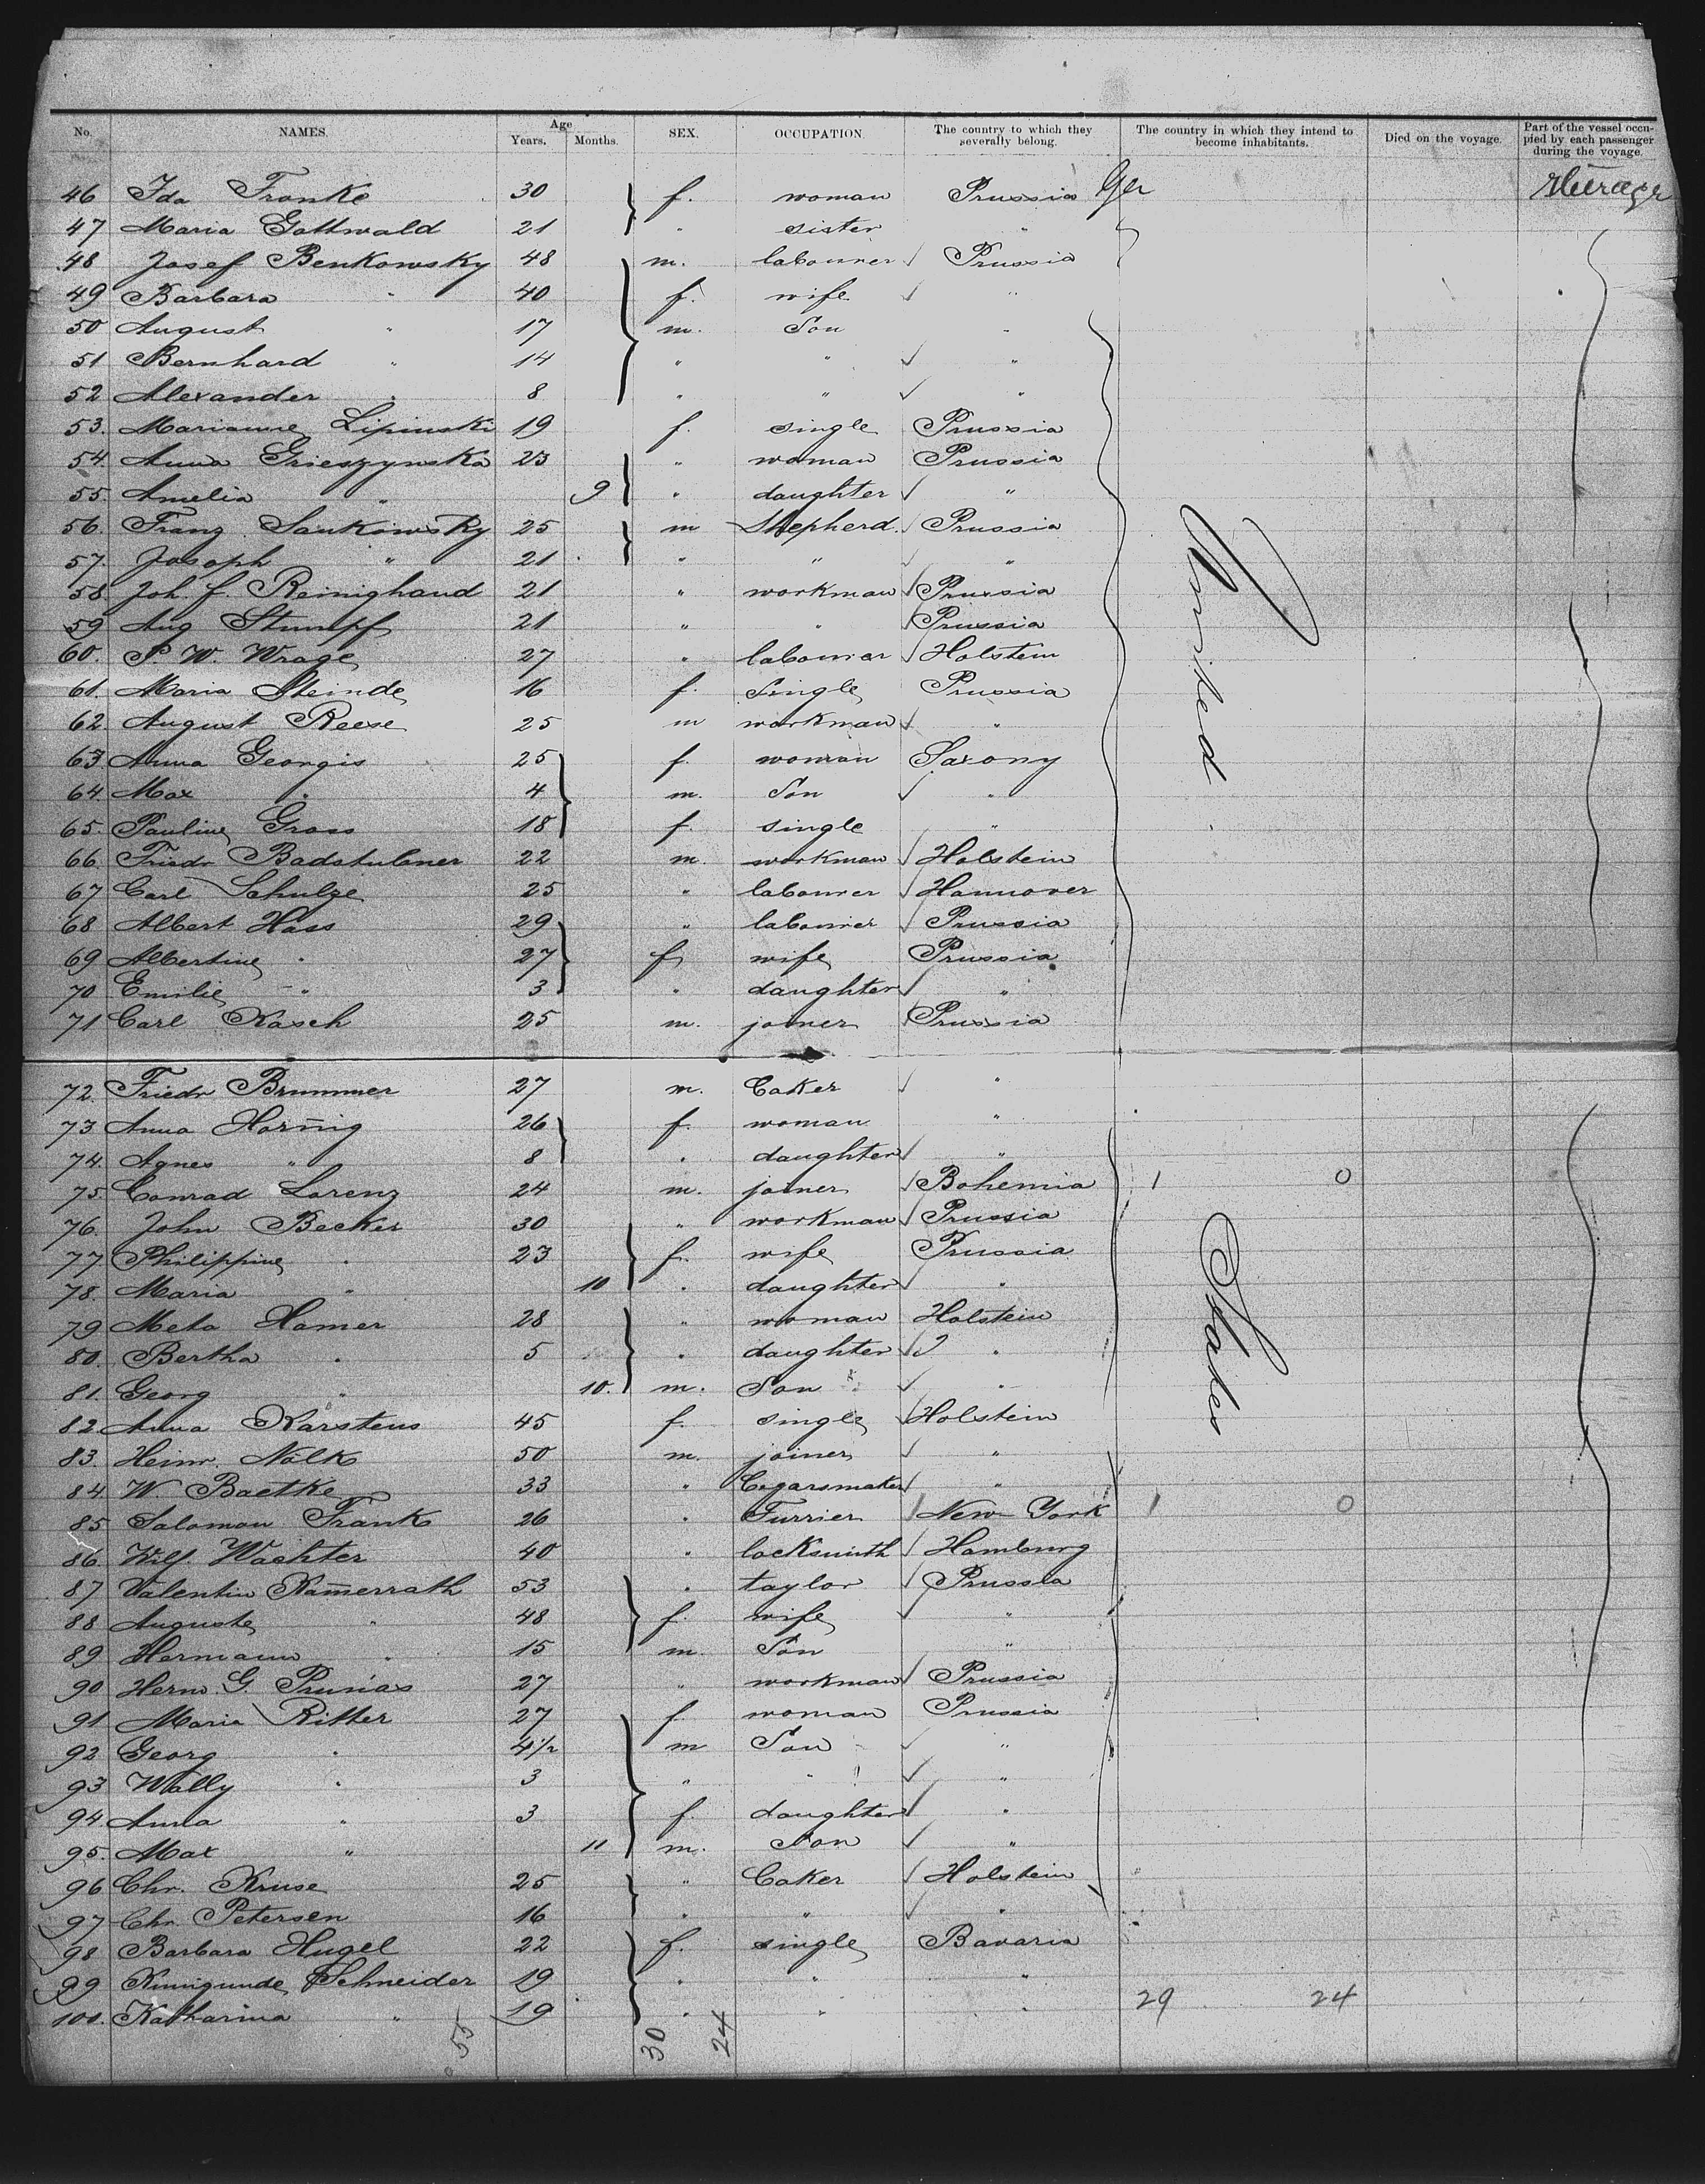 No. NAMES. Age Years. Months. SEX. OCCUPATION. The country to which they severally belong. The country in which they intend to become inhabitants. Died on the voyage. Part of the vessel occupied by each passenger during the voyage.
46 Ida Franke 30 f. woman Prussia Ger Steerage
47 Maria Gottwald 21 " sister "
48 Josef Benkowsky 48 m. labourer Prussia
49 Barbara " 40 f. wife "
50 August " 17 m. Son "
51 Bernhard " 14 " " "
52 Alexander " 8 " " "
53. Marianne Lipinski 19 f. single Prussia
54. Anna Grieszynska 23 " woman Prussia
55. Amelia " 9 " daughter "
56. Franz Sankowsky 25 m Shepherd. Prussia
57. Josoph " 21 " " "
58. Joh. f. Reinighaud 21 " workman Prussia
59 Aug Stumpf 21 " " Prussia
60. P. W. Wrage 27 " labourer Holstein
61. Maria Steinde 16 f. Single Prussia
62. August Reese 25 m workman "
63 Anna Georgis 25 f. woman Saxony
64. Max " 4 m. Son "
65. Pauline Gross 18 f. single "
66. Friedr Badstubner 22 m. workman Holstein
67 Carl Schulze 25 " labourer Hannover
68 Albert Hass 29 " labourer Prussia
69 Albertine " 27 f wife Prussia
70 Emilie " 3 " daughter "
71 Carl Kasch 25 m. joiner Prussia
72. Friedr Brummer 27 m. Baker "
73. Anna Hornig 26 f. woman "
74. Agnes " 8 " daughter "
75. Conrad Lorenz 24 m. joiner Bohemia 1 0
76. John Becker 30 " workman Prussia
77. Philippine " 23 f. wife Prussia
78. Maria " 10 " daughter "
79 Meta Hamer 28 " woman Holstein
80. Bertha " 5 " daughter "
81. Georg " 10. m. Son "
82. Anna Karstens 45 f. single Holstein
83. Heinr. Nölk 50 m. joiner "
84 W Baetke 33 " Cegarsmaker "
85 Salomon Frank 26 " Furrier New York 1 0
86. Wilh. Wachter 40 " locksmith Hamburg
87 Valentin Kam̄errath 53 " taylor Prussia
88 Auguste " 48 f. wife "
89 Hermann " 15 m. Son "
90 Herm. G. 27 " workman Prussia
91 Maria Ritter 27 f woman Prussia
92 Georg " 4½ m Son "
93 Wally " 3 " " "
94 Anna " 3 f. daughter "
95. Max " 11 m. Son "
96 Chr. Kruse 25 " Baker Holstein
97 Chr. Petersen 16 " " "
98 Barbara Hugel 22 f. single Bavaria
99 Kunigunde Schneider 19 " " "
100. Katharina " 19 " " " 29 24
United States
55 30 24